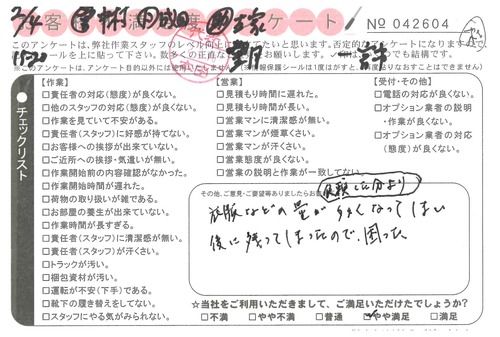 お客様満足度アンケート!
No 042604
このアンケートは、弊社作業スタッフのレベル向上
たいと思います。否定的なアンケートになりますので
シールを上に貼って下さい。数多くの正直な
お願いします。
でも結構です。
※このアンケートは、アンケート目的以外には使用
報保護シールは1度はがすと
ることはできません)
チェックリスト
【作業】
□責任者の対応(態度)が良くない。
□他のスタッフの対応(態度)が良くない。
□作業を見ていて不安がある。
□責任者(スタッフ)に好感が持てない。
□お客様への挨拶が出来ていない。
□ご近所への挨拶・気遣いが無い。
□作業開始前の内容確認がなかった。
□作業開始時間が遅れた。
□荷物の取り扱いが雑である。
□お部屋の養生が出来ていない。
□作業時間が長すぎる。
□責任者(スタッフ)に清潔感が無い。
□責任者(スタッフ)が汗くさい。
□トラックが汚い。
□梱包資材が汚い。
□運転が不安(下手)である。
□靴下の履き替えをしてない。
□スタッフにやる気がみられない。
【営業】
□見積もり時間に遅れた。
□見積もり時間が長い。
□営業マンに清潔感が無い。
□営業マンが煙草くさい。
□営業マンが汗くさい。
□営業態度が良くない。
□営業の説明と作業が一致してない。
【受付・その他】
□電話の対応が良くない。
□オプション業者の説明
・作業が良くない。
□オプション業者の対応
(態度)が良くない。
その他、ご意見・ご要望等ありましたらお
依頼した分より
衣服などの量が多くなってしまい
後に残ってしまったので、困った
☆当社をご利用いただきまして、ご満足いただけたでしょうか?
□不満 □やや不満 □普通 □やや満足 □満足